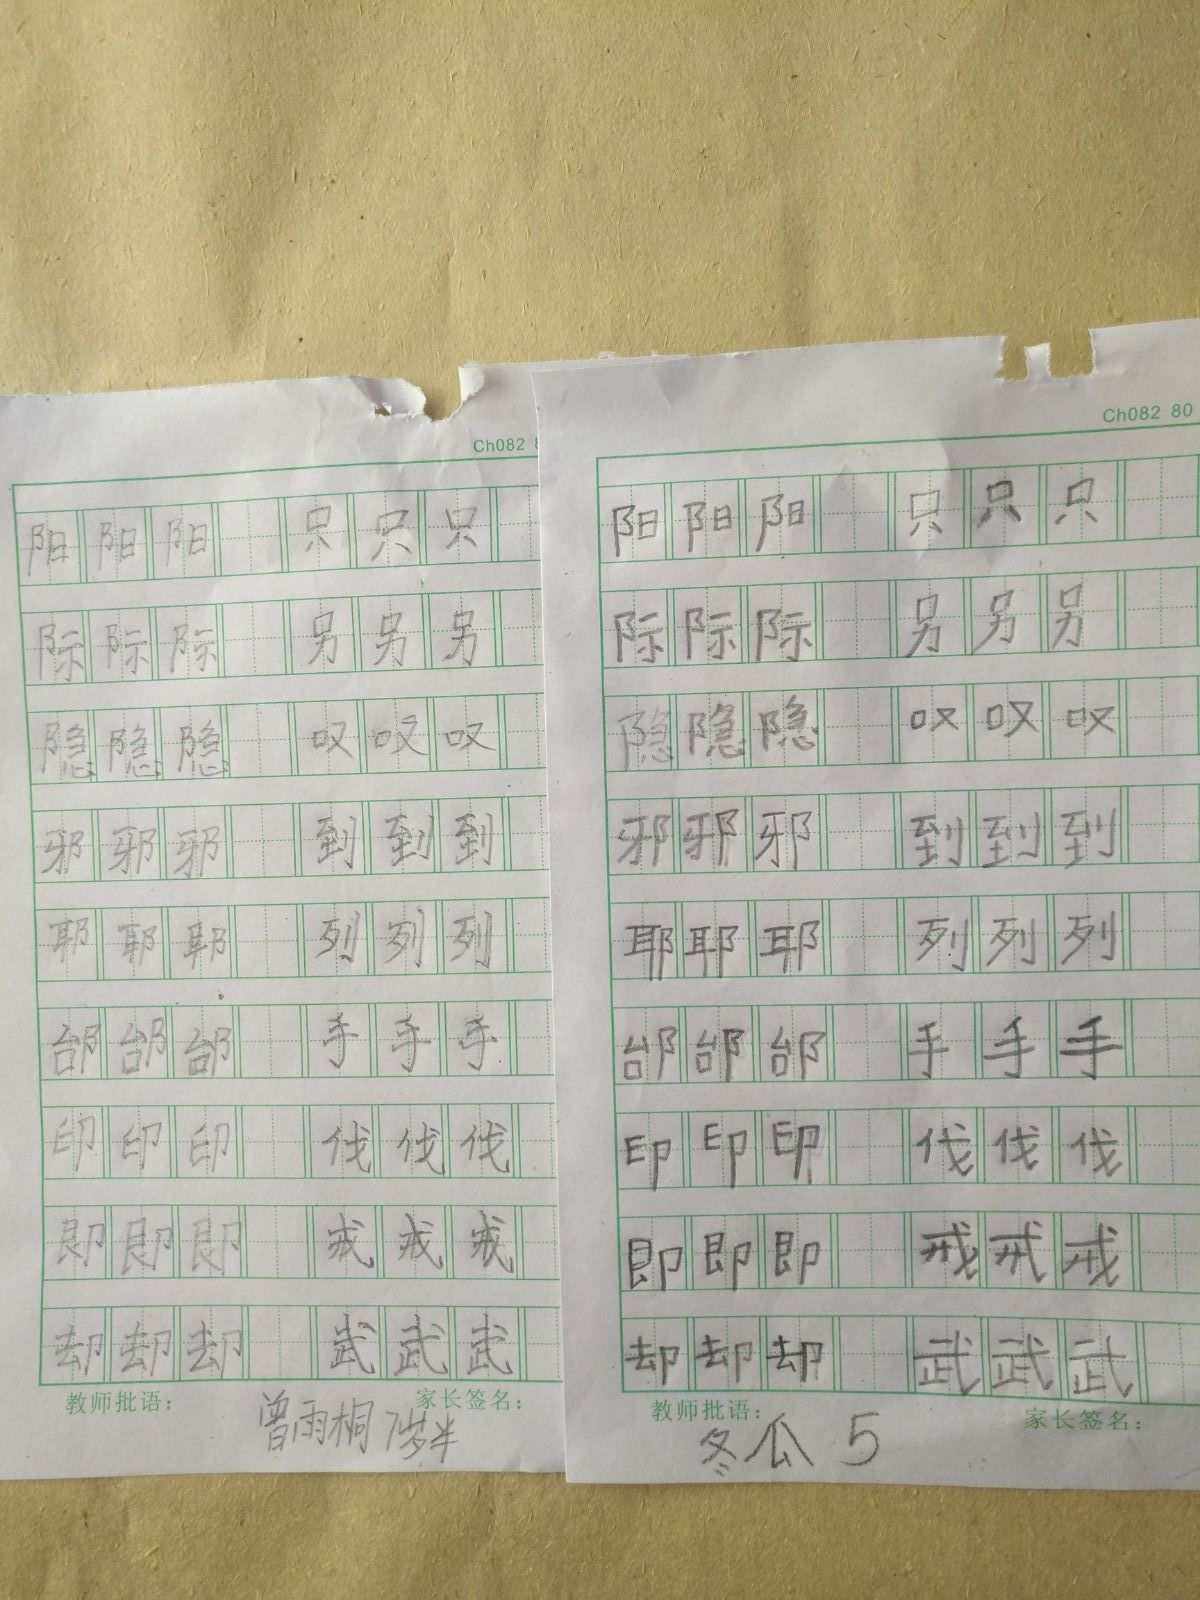 Ch082 8
阳 阳 阳 只 只 只
际 际 际 另 另 另
隐 隐 隐 叹 叹 叹
邪 邪 邪 到 到 到
耶 耶 耶 列 列 列
邰 邰 邰 手 手 手
印 印 印 伐 伐 伐
即 即 即 戒 戒 戒
却 却 却 武 武 武
教师批语： 家长签名：
曾雨桐 7岁半
Ch082 80
阳 阳 阳 只 只 只
际 际 际 另 另 另
隐 隐 隐 叹 叹 叹
邪 邪 邪 到 到 到
耶 耶 耶 列 列 列
邰 邰 邰 手 手 手
印 印 印 伐 伐 伐
即 即 即 戒 戒 戒
却 却 却 武 武 武
教师批语： 家长签名：
冬瓜 5